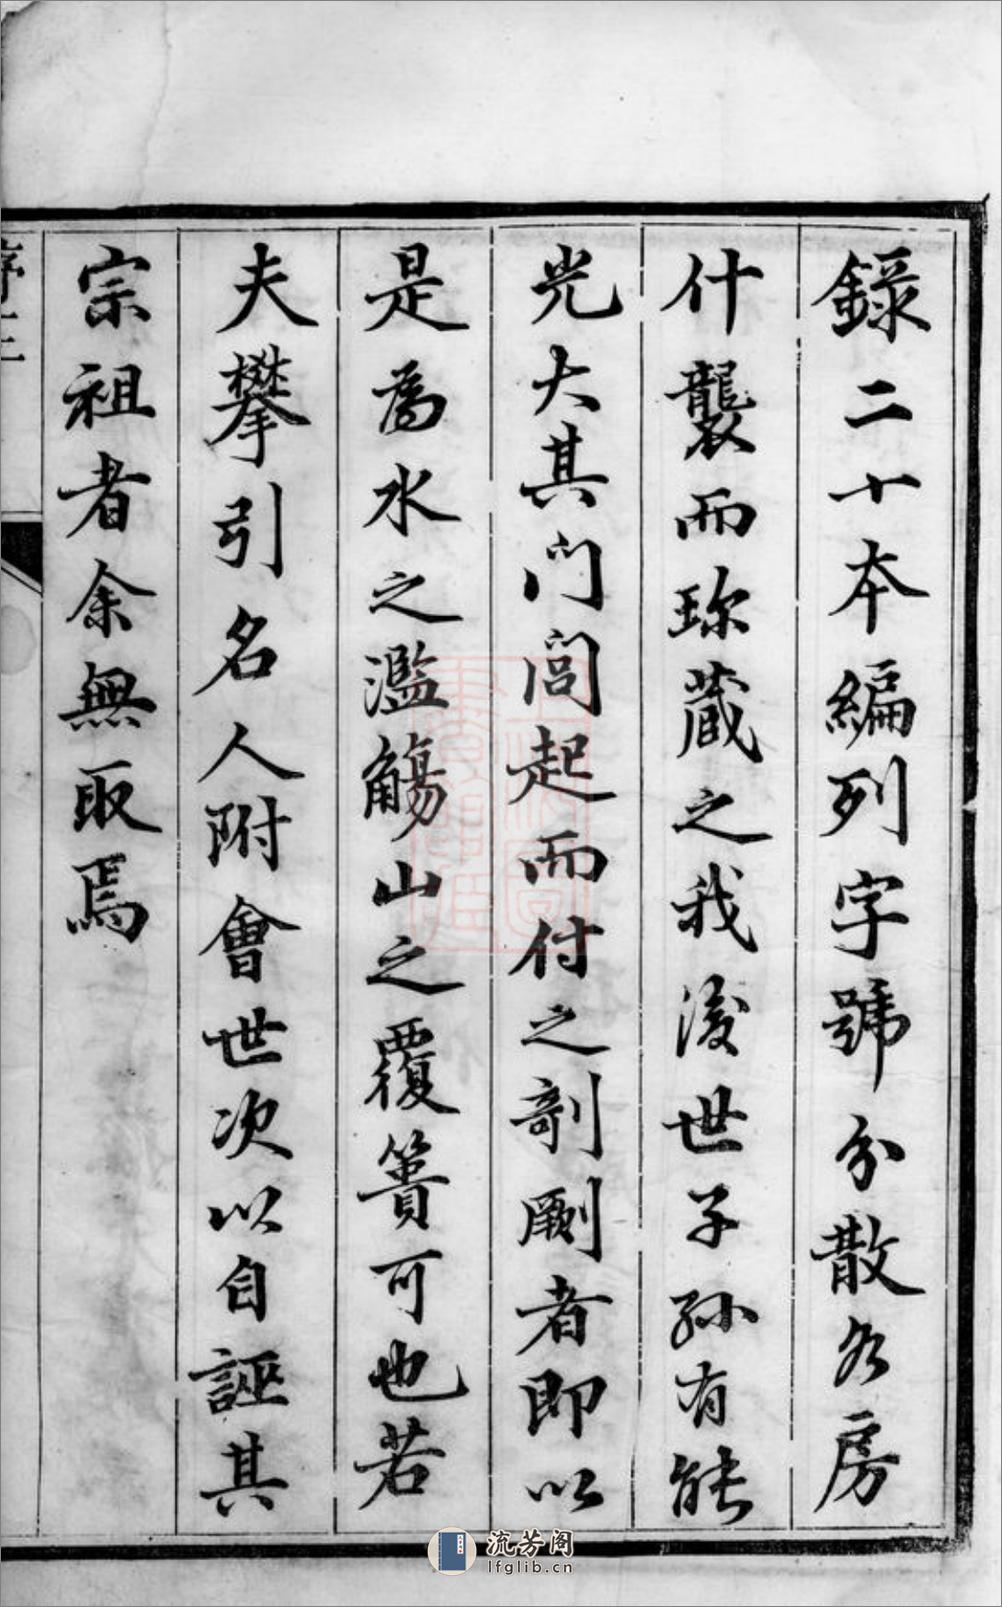 錄二十本編列字號分散各房
什襲而珍藏之我後世子孫有能
光大其門閭起而付之剞劂者即以
是為水之濫觴山之覆簣可也若
夫攀引名人附會世次以自誣其
宗祖者余無取焉
序三
流芳阁
lfglib.cn